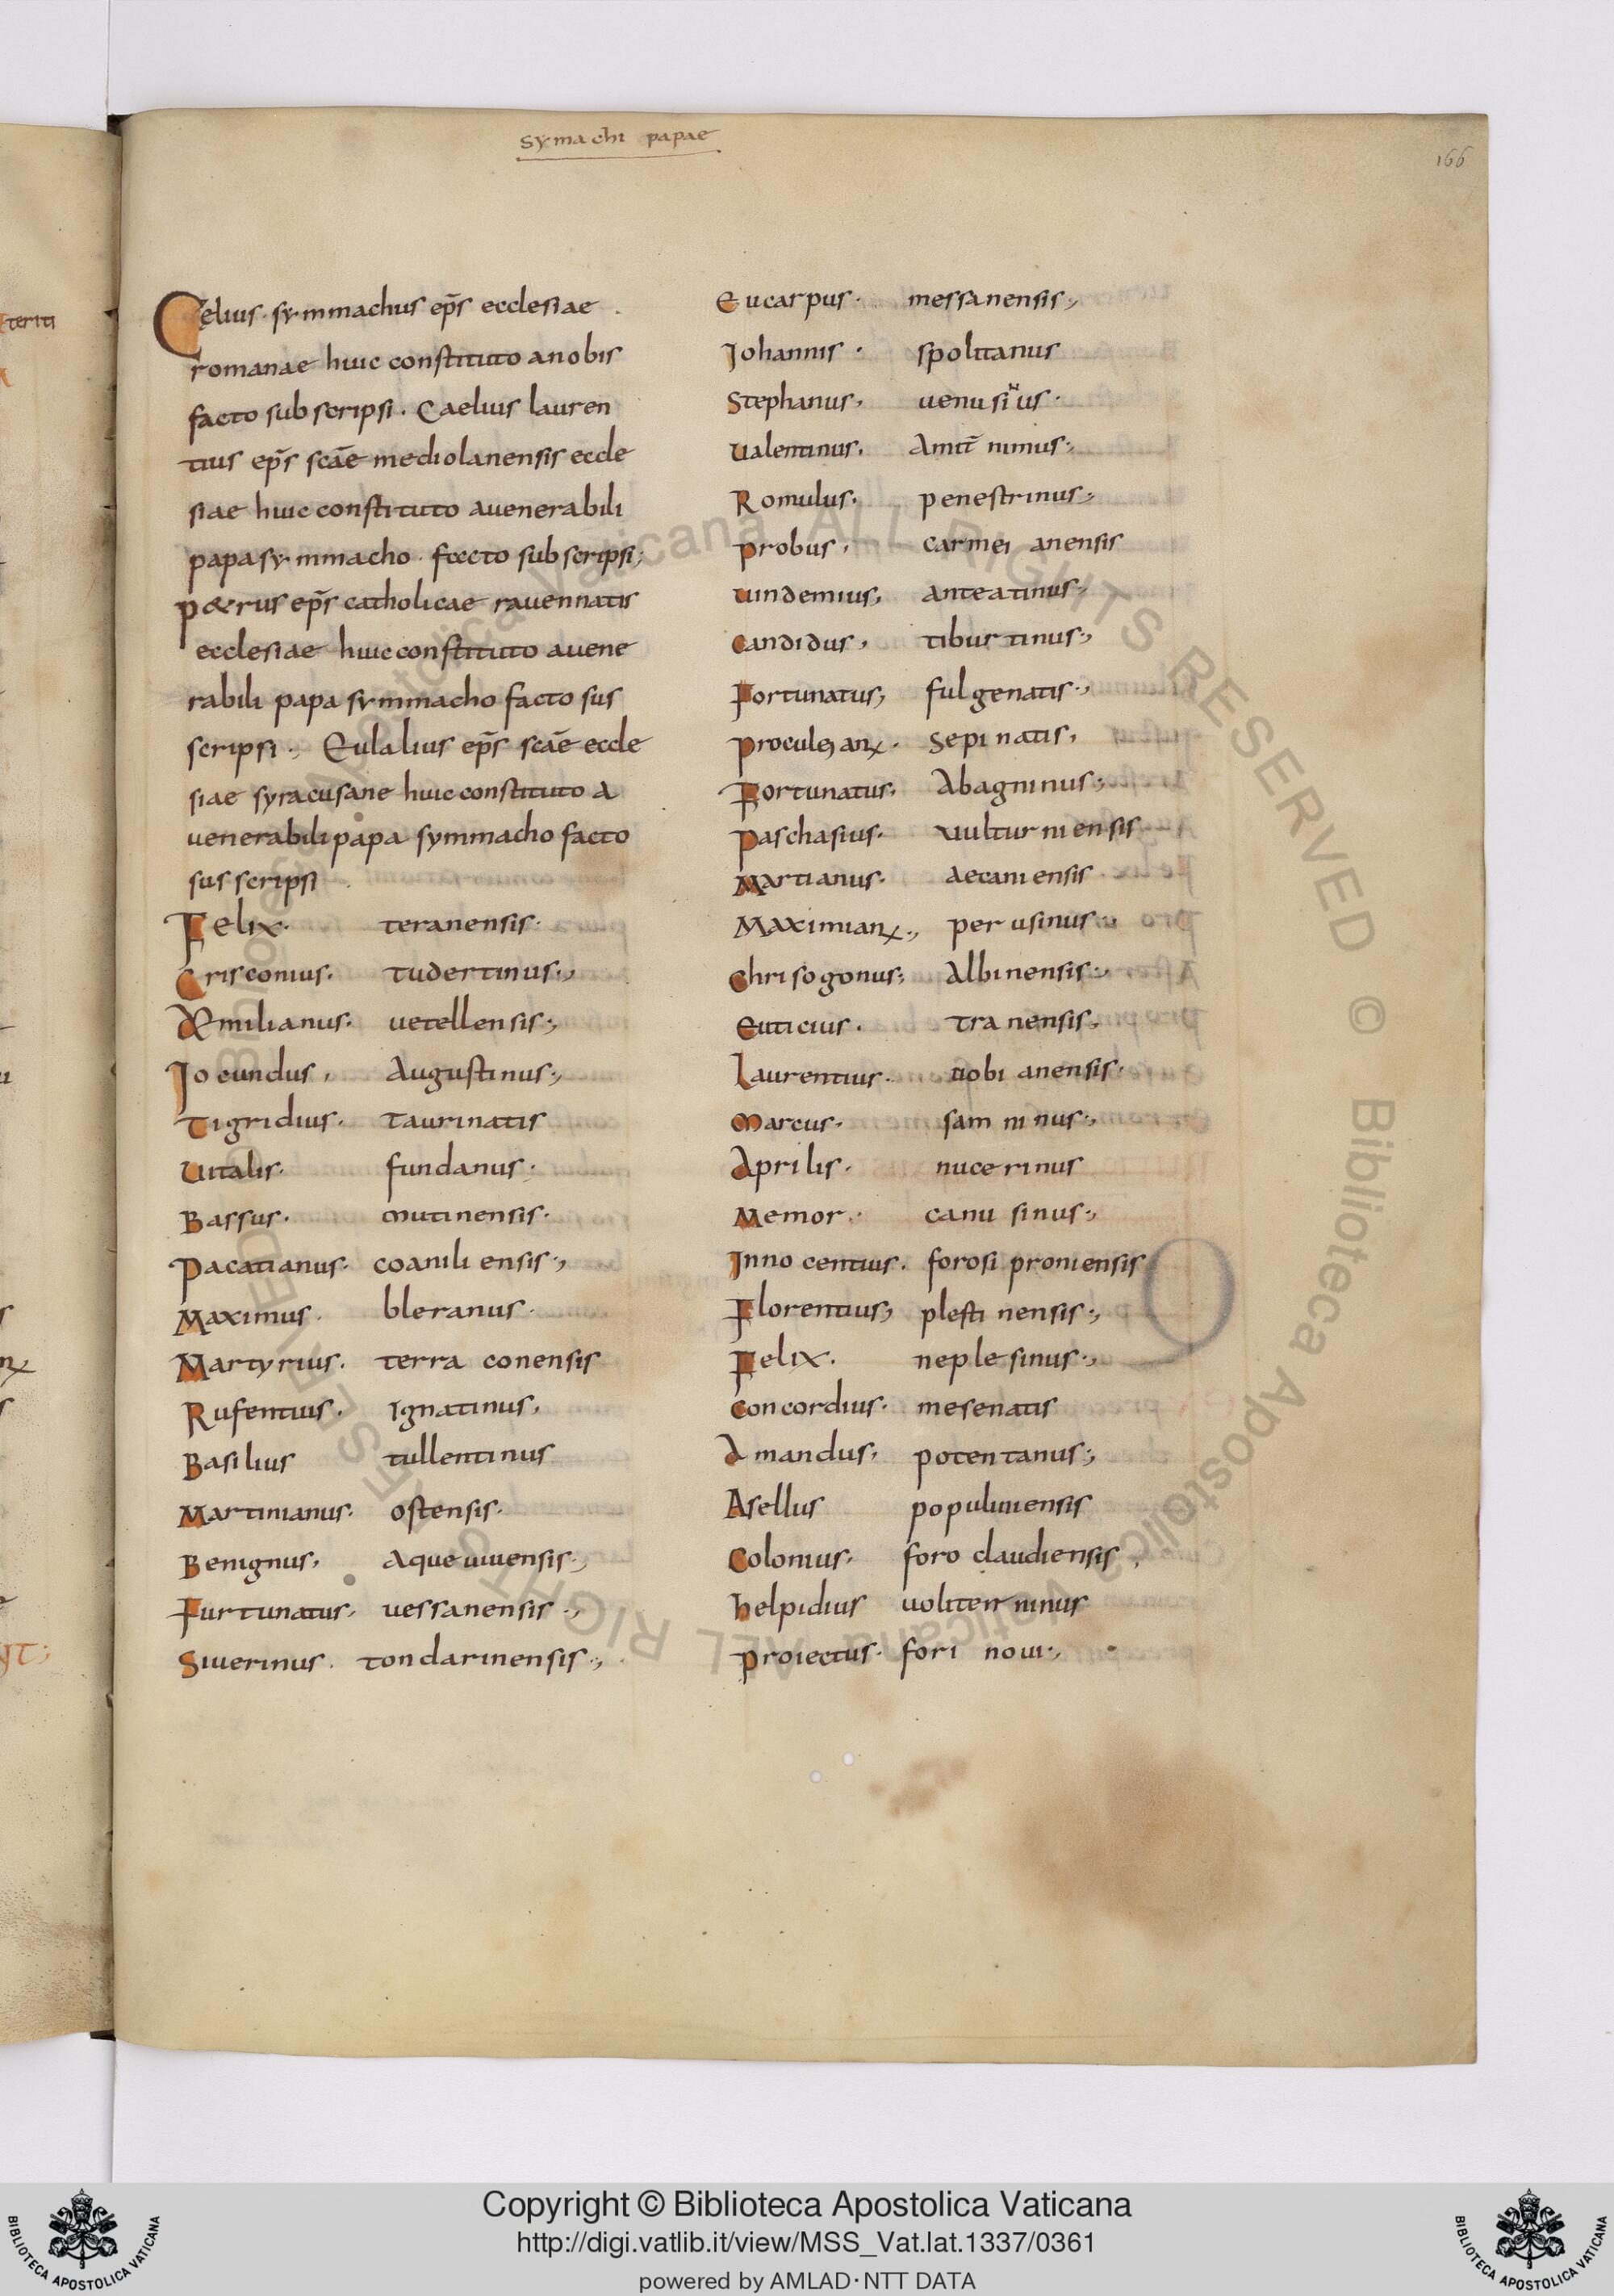 symachi papae
166
Celius · symmachus ep̄s ecclesiae
romanae huic constituto anobis
facto subscripsi . Caelius lauren
tius ep̄s scāe mediolanensis eccle
siae huic constituto auenerabili
papasymmacho · facto subscripsi;
petrus ep̄s catholicae rauennatis
ecclesiae huicconstituto auene
rabili papa symmacho facto sus
scripsi ·, Eulalius ep̄s scāe eccle
siae syracusane huicconstituto a
uenerabilipapa symmacho facto
susscripsi
Felix · teranensis ·
Crisconius · tudertinus ·,
Aemilianus · uetellensis ;
Iocundus , Augustinus ;
Tigridius · Taurinatis
Uitalis · fundanus ·
Bassus · mutinensis ·
Pacatianus · coanili ensis ·,
Maximus · bleranus ·
Martyrius . terra conensis
Rufentius . Ignatinus ,
Basilius tullentinus
Martinianus · ostensis ·
Benignus , Aqueuiuensis ·,
Furtunatus , uessanensis ·,
Siuerinus . tondarinensis ·,
Eucarpus · messanensis ,
Iohannis · spolitanus
Stephanus , uenusinus ·
Ualentinus . Amit̄ nınus ;
Romulus . penestrinus ;
probus , carmei anensis
uindemius , anteatinus ,
Candidus , tiburtinus ·,
Fortunatus , fulgenatis ·,
proculeianꝰ · Sepinatis ,
Fortunatus . Abagninus ;
Paschasius · uulturniensis
Martianus · aecaniensis
Maximianꝰ ·, perusinus ·,
Chrisogonus ; Albinensis ·,
Euticius . tranensis ,
Laurentius · uobi anensis ·
Marcus · sam ni nus ·,
Aprilis · nucerinus
Memor · canu sinus ·,
Innocentius . forosi proniensis
Florentius , plesti nensis ·,
Felix . neplesinus ·,
Concordius · mesenatis
Amandus , potentanus ;
Asellus populiniensis
Colonius . foro claudiensis ,
helpidius uoliterrninus
proiectus · fori noui ·,
Copyright © Biblioteca Apostolica Vaticana
http://digi.vatlib.it/view/MSS_Vat.lat.1337/0361
powered by AMLAD·NTT DATA